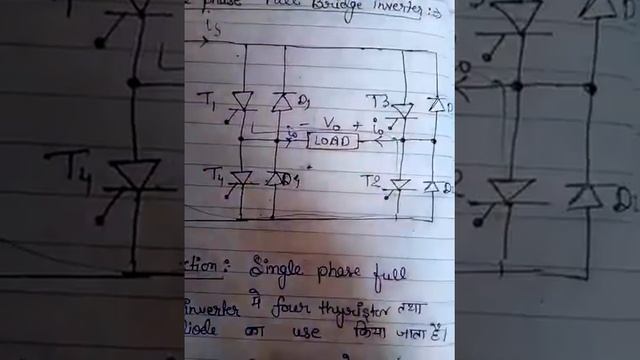 phase Full Bridge Inverter :⇒
is
T1 D1 T3 D
io - Vo + io
LOAD
T4 D4 T2 D2
ction : Single phase full
inverter में four thyristor तथा
diode का use किया जाता है।